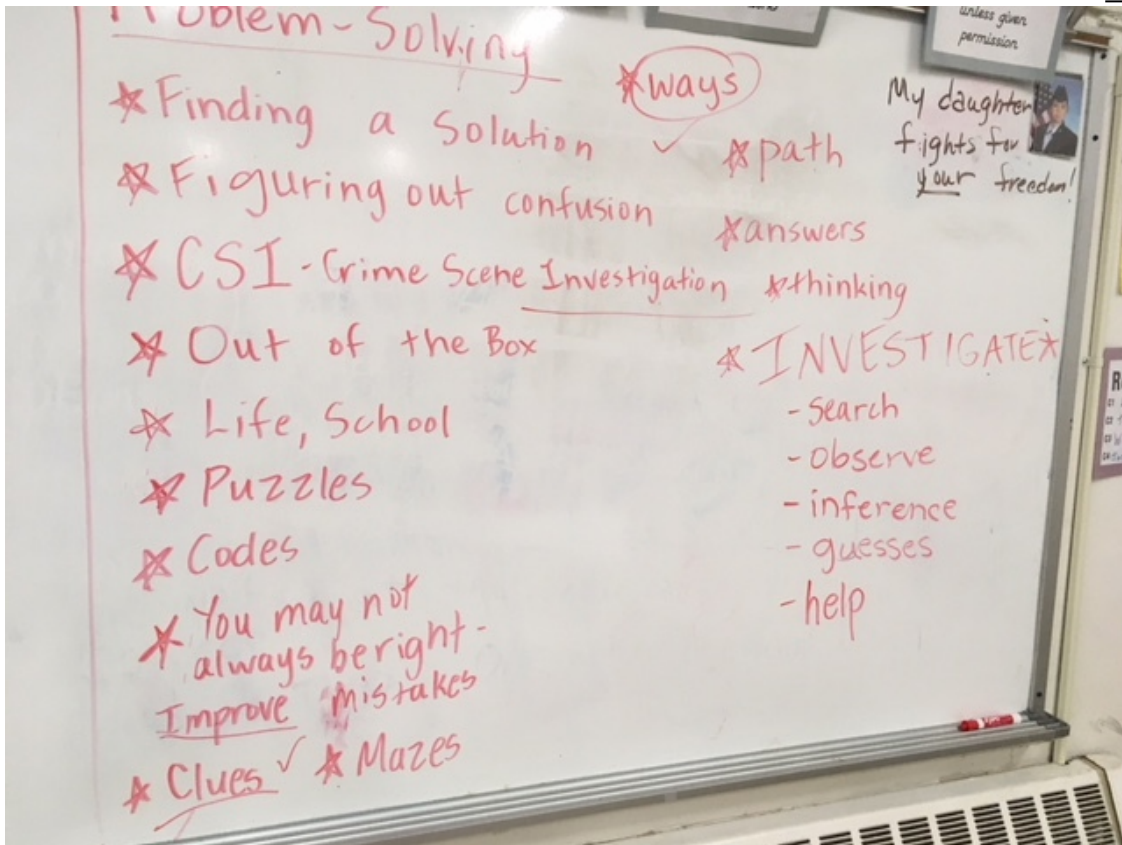 Problem-Solving
* Finding a Solution ✓
* Figuring out confusion
* CSI - Crime Scene Investigation
* Out of the Box
* Life, School
* Puzzles
* Codes
* You may not
always be right -
Improve mistakes
* Clues ✓ * Mazes
* ways
* path
* answers
* thinking
* INVESTIGATE *
- search
- observe
- inference
- guesses
- help
My daughter
fights for
your freedom!
unless given
permission